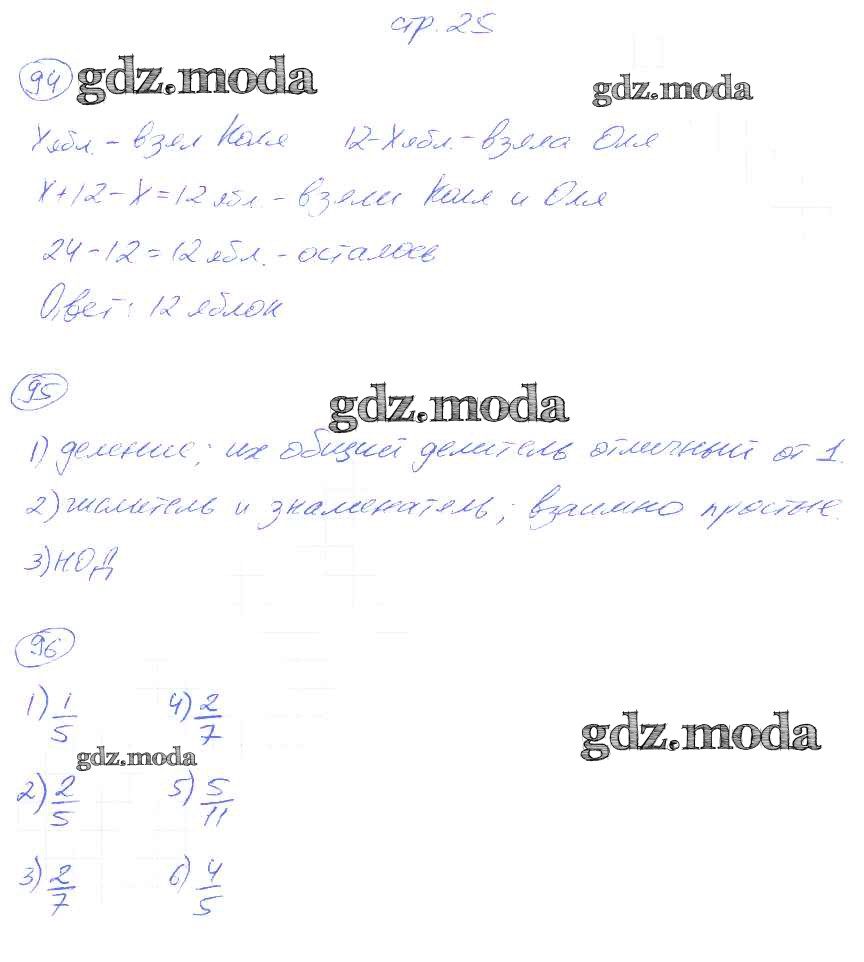 стр. 25
94 gdz.moda gdz.moda
Х ябл. - взял Коля 12-Х ябл. - взяла Оля
Х+12-Х=12 ябл. - взяли Коля и Оля
24-12=12 ябл. - осталось
Ответ: 12 яблок
95
gdz.moda
1) деление; их общий делитель отличный от 1.
2) числитель и знаменатель; взаимно простые.
3) НОД
96
1) 1/5 4) 2/7
gdz.moda gdz.moda
2) 2/5 5) 5/11
3) 2/7 6) 4/5